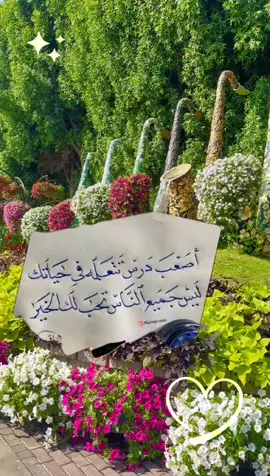 أصعب درس تتعلمه في حياتك
ليس جميع الناس تحب لك الخير